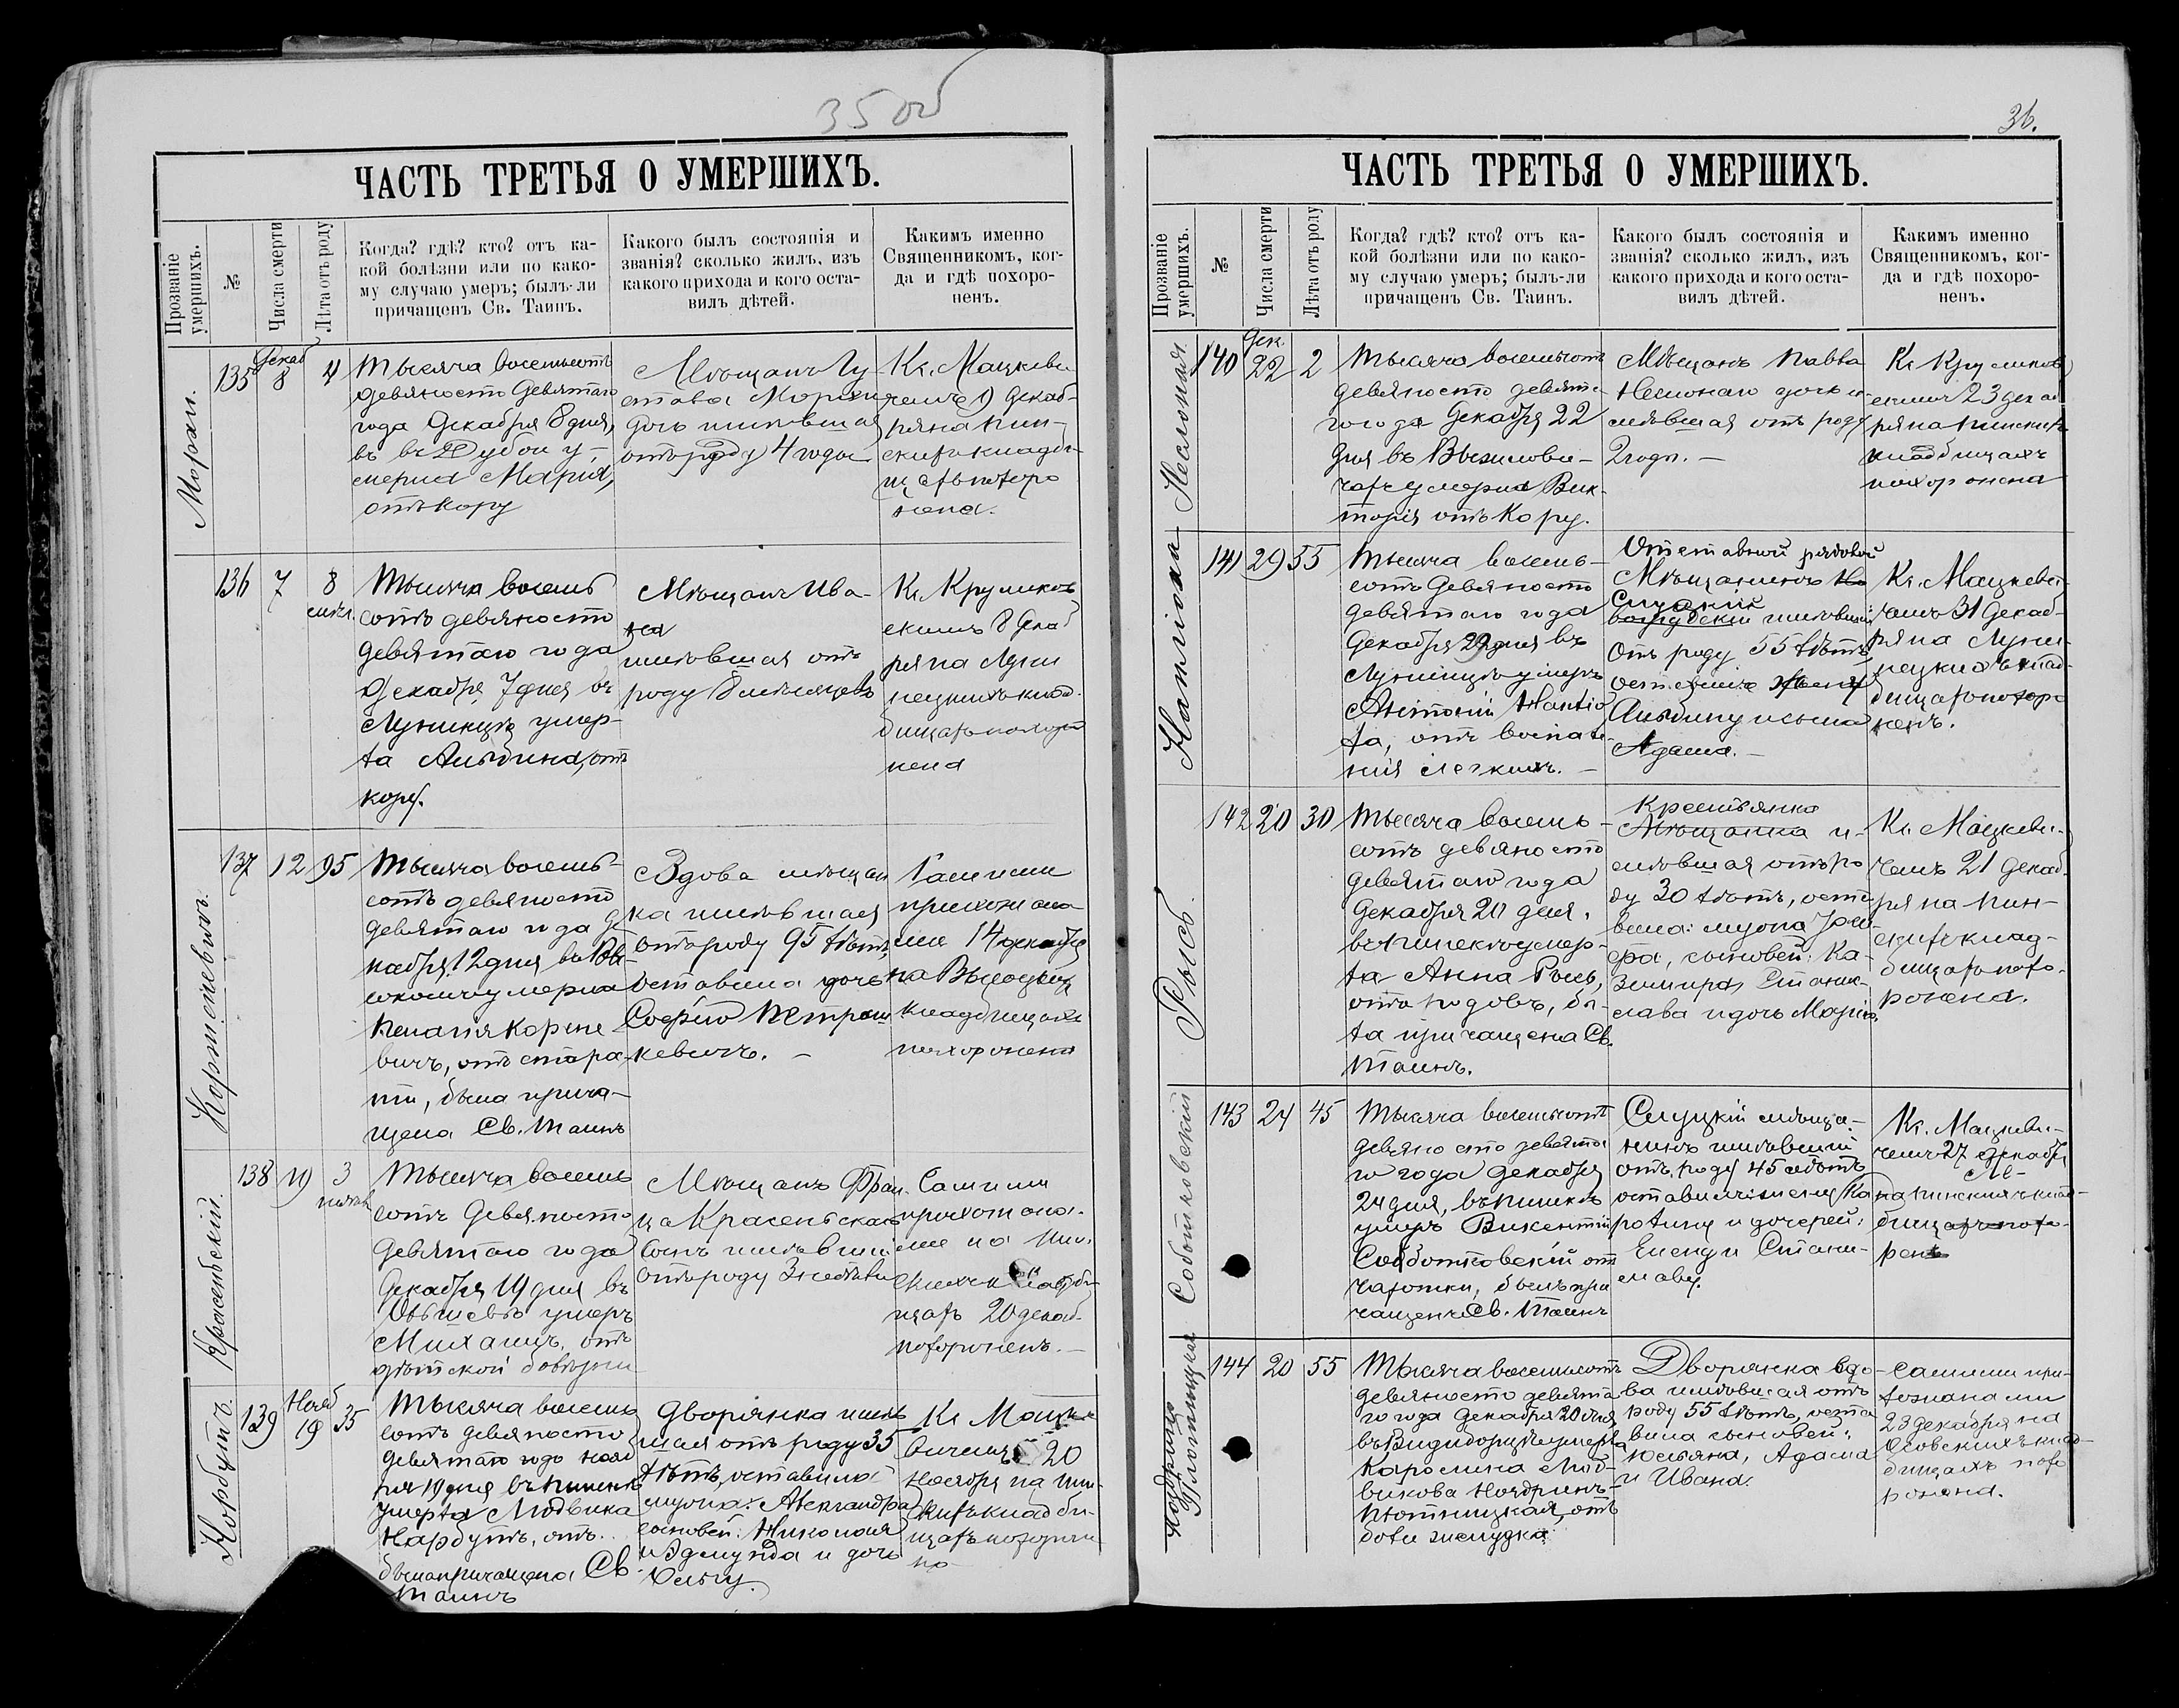 35 об
ЧАСТЬ ТРЕТЬЯ О УМЕРШИХЪ.
Прозваніе умершихъ.
№
Числа смерти
Лѣта отъ роду
Когда? гдѣ? кто? отъ ка-
кой болѣзни или по како-
му случаю умеръ; былъ-ли
причащенъ Св. Таинъ.
Какого былъ состоянія и
званія? сколько жилъ, изъ
какого прихода и кого оста-
вилъ дѣтей.
Какимъ именно
Священникомъ, ког-
да и гдѣ похоро-
ненъ.
135
Декаб
8
4
Тысяча восемьсотъ
девяносто девятаго
года Декабря 8 дня,
въ Дубои у-
мерла Марія,
отъ кору
Мѣщанъ
дочь жившая
отъ роду 4 года
Кс. Мацкеви
чемъ 9 Декаб-
ря на Пин-
скихъ кладби-
щахъ похоро
нена.
136
7
8
мѣс.
Тысяча восемь
сотъ девяносто
девятаго года
Декабря 7 дня въ
Лунинцѣ умер-
ла Альбина, отъ
кору.
Мѣщанъ Ива-
на
жившая отъ
роду 8 мѣсяцевъ
Кс. Круликов
скимъ 8 Декаб
ря на Луни
нецкихъ клад-
бищахъ похоро
нена
Корженевичъ.
137
12
95
Тысяча восемь-
сотъ девяносто
девятаго года де
кабря 12 дня въ Вы-
соком умерла
Пелагія Корже
вичъ, отъ старо-
ти, была прича-
щена Св. Таинъ
Вдова мѣщан
ка жившая
отъ роду 95 лѣтъ,
оставила дочь
Софію Петраш
кевичъ. -
Самими
прихожана
ми 14 декабря
на Высоцкихъ
кладбищахъ
похоронена
Красеньскій.
138
19
3
недѣли
Тысяча восемь
сотъ девяносто
девятаго года
Декабря 19 дня въ
умеръ
Михаилъ, отъ
дѣтской болѣзни
Мѣщанъ Фран-
ца Красеньскаго
сынъ жившій
отъ роду 3 недѣли
Самими
прихожана-
ми на Пин-
скихъ кладби-
щахъ 20 декаб.
похороненъ. -
Нарбутъ.
139
Нояб
19
35
Тысяча восемь
сотъ девяносто
девятаго года нояб
ря 19 дня въ Пинскѣ
умерла Людвика
Нарбутъ, отъ
была причащена Св.
Таинъ
Дворянка жив
шая отъ роду 35
лѣтъ, оставила
мужа: Александра
сыновей: Николая
и Эдмунда и дочь
Ольгу.
Кс. Мацке
вичемъ 20
Ноября на Пин-
скихъ кладби-
щахъ похороне
на
36.
ЧАСТЬ ТРЕТЬЯ О УМЕРШИХЪ.
Прозваніе умершихъ.
№
Числа смерти
Лѣта отъ роду
Когда? гдѣ? кто? отъ ка-
кой болѣзни или по како-
му случаю умеръ; былъ-ли
причащенъ Св. Таинъ.
Какого былъ состоянія и
званія? сколько жилъ, изъ
какого прихода и кого оста-
вилъ дѣтей.
Какимъ именно
Священникомъ, ког-
да и гдѣ похоро-
ненъ.
140
Дек.
22
2
Тысяча восемьсотъ
девяносто девята-
го года Декабря 22
дня въ
умерла Вик-
торія отъ кору.
Мѣщанъ Павла
дочь жи-
вшая отъ роду
2 года. -
Кс. Круликов
скимъ 23 декаб
ря на Пинскихъ
кладбищахъ
похоронена
141
29
55
Тысяча восемь-
сотъ девяносто
девятаго года
Декабря 29 дня въ
Лунинцѣ умеръ
Антоній
отъ воспале
нія легкихъ. -
Отставной рядовой
Мѣщанинъ
Слуцкій
жившій
отъ роду 55 лѣтъ
оставилъ жену
Альбину и сына
Адама. -
Кс. Мацкеви-
чемъ 31 Декаб-
ря на Луни-
нецкихъ клад-
бищахъ похоро
ненъ.
Рысь.
142
20
30
Тысяча восемь-
сотъ девяносто
девятаго года
Декабря 20 дня,
въ Пинскѣ умер-
ла Анна Рысь,
отъ родовъ, бы-
ла причащена Св.
Таинъ.
Крестьянка
Мѣщанка жи-
вшая отъ ро
ду 30 лѣтъ, оста
вила: мужа Іоси
фа, сыновей: Ка-
зимира, Станис-
лава и дочь Марію.
Кс. Мацкеви-
чемъ 21 декаб-
ря на Пин-
скихъ клад-
бищахъ похо-
ронена.
Соботковскій
143
24
45
Тысяча восемьсотъ
девяносто девята
го года декабря
24 дня, въ Пинскѣ
умеръ Викентій
Соботковскій от
чахотки, былъ при
чащенъ Св. Таинъ
Слуцкій мѣща-
нинъ жившій
отъ роду 45 лѣтъ
оставилъ жену Ка
ролину и дочерей:
Елену и Стани-
славу.
Кс. Мацкеви-
чемъ 27 декабря
на Пинскихъ клад-
бищахъ похо-
ренъ
Плотницкая
144
20
55
Тысяча восемьсотъ
девяносто девята
го года Декабря 20 дня
умерла
Каролина Люд-
викова
Плотницкая, отъ
боли желудка.
Дворянка вдо-
ва жившая отъ
роду 55 лѣтъ, оста
вила сыновей:
Юльяна, Адама
и Ивана.
Самими при-
хожанами
23 декабря на
клад-
бищахъ похо
ронена.